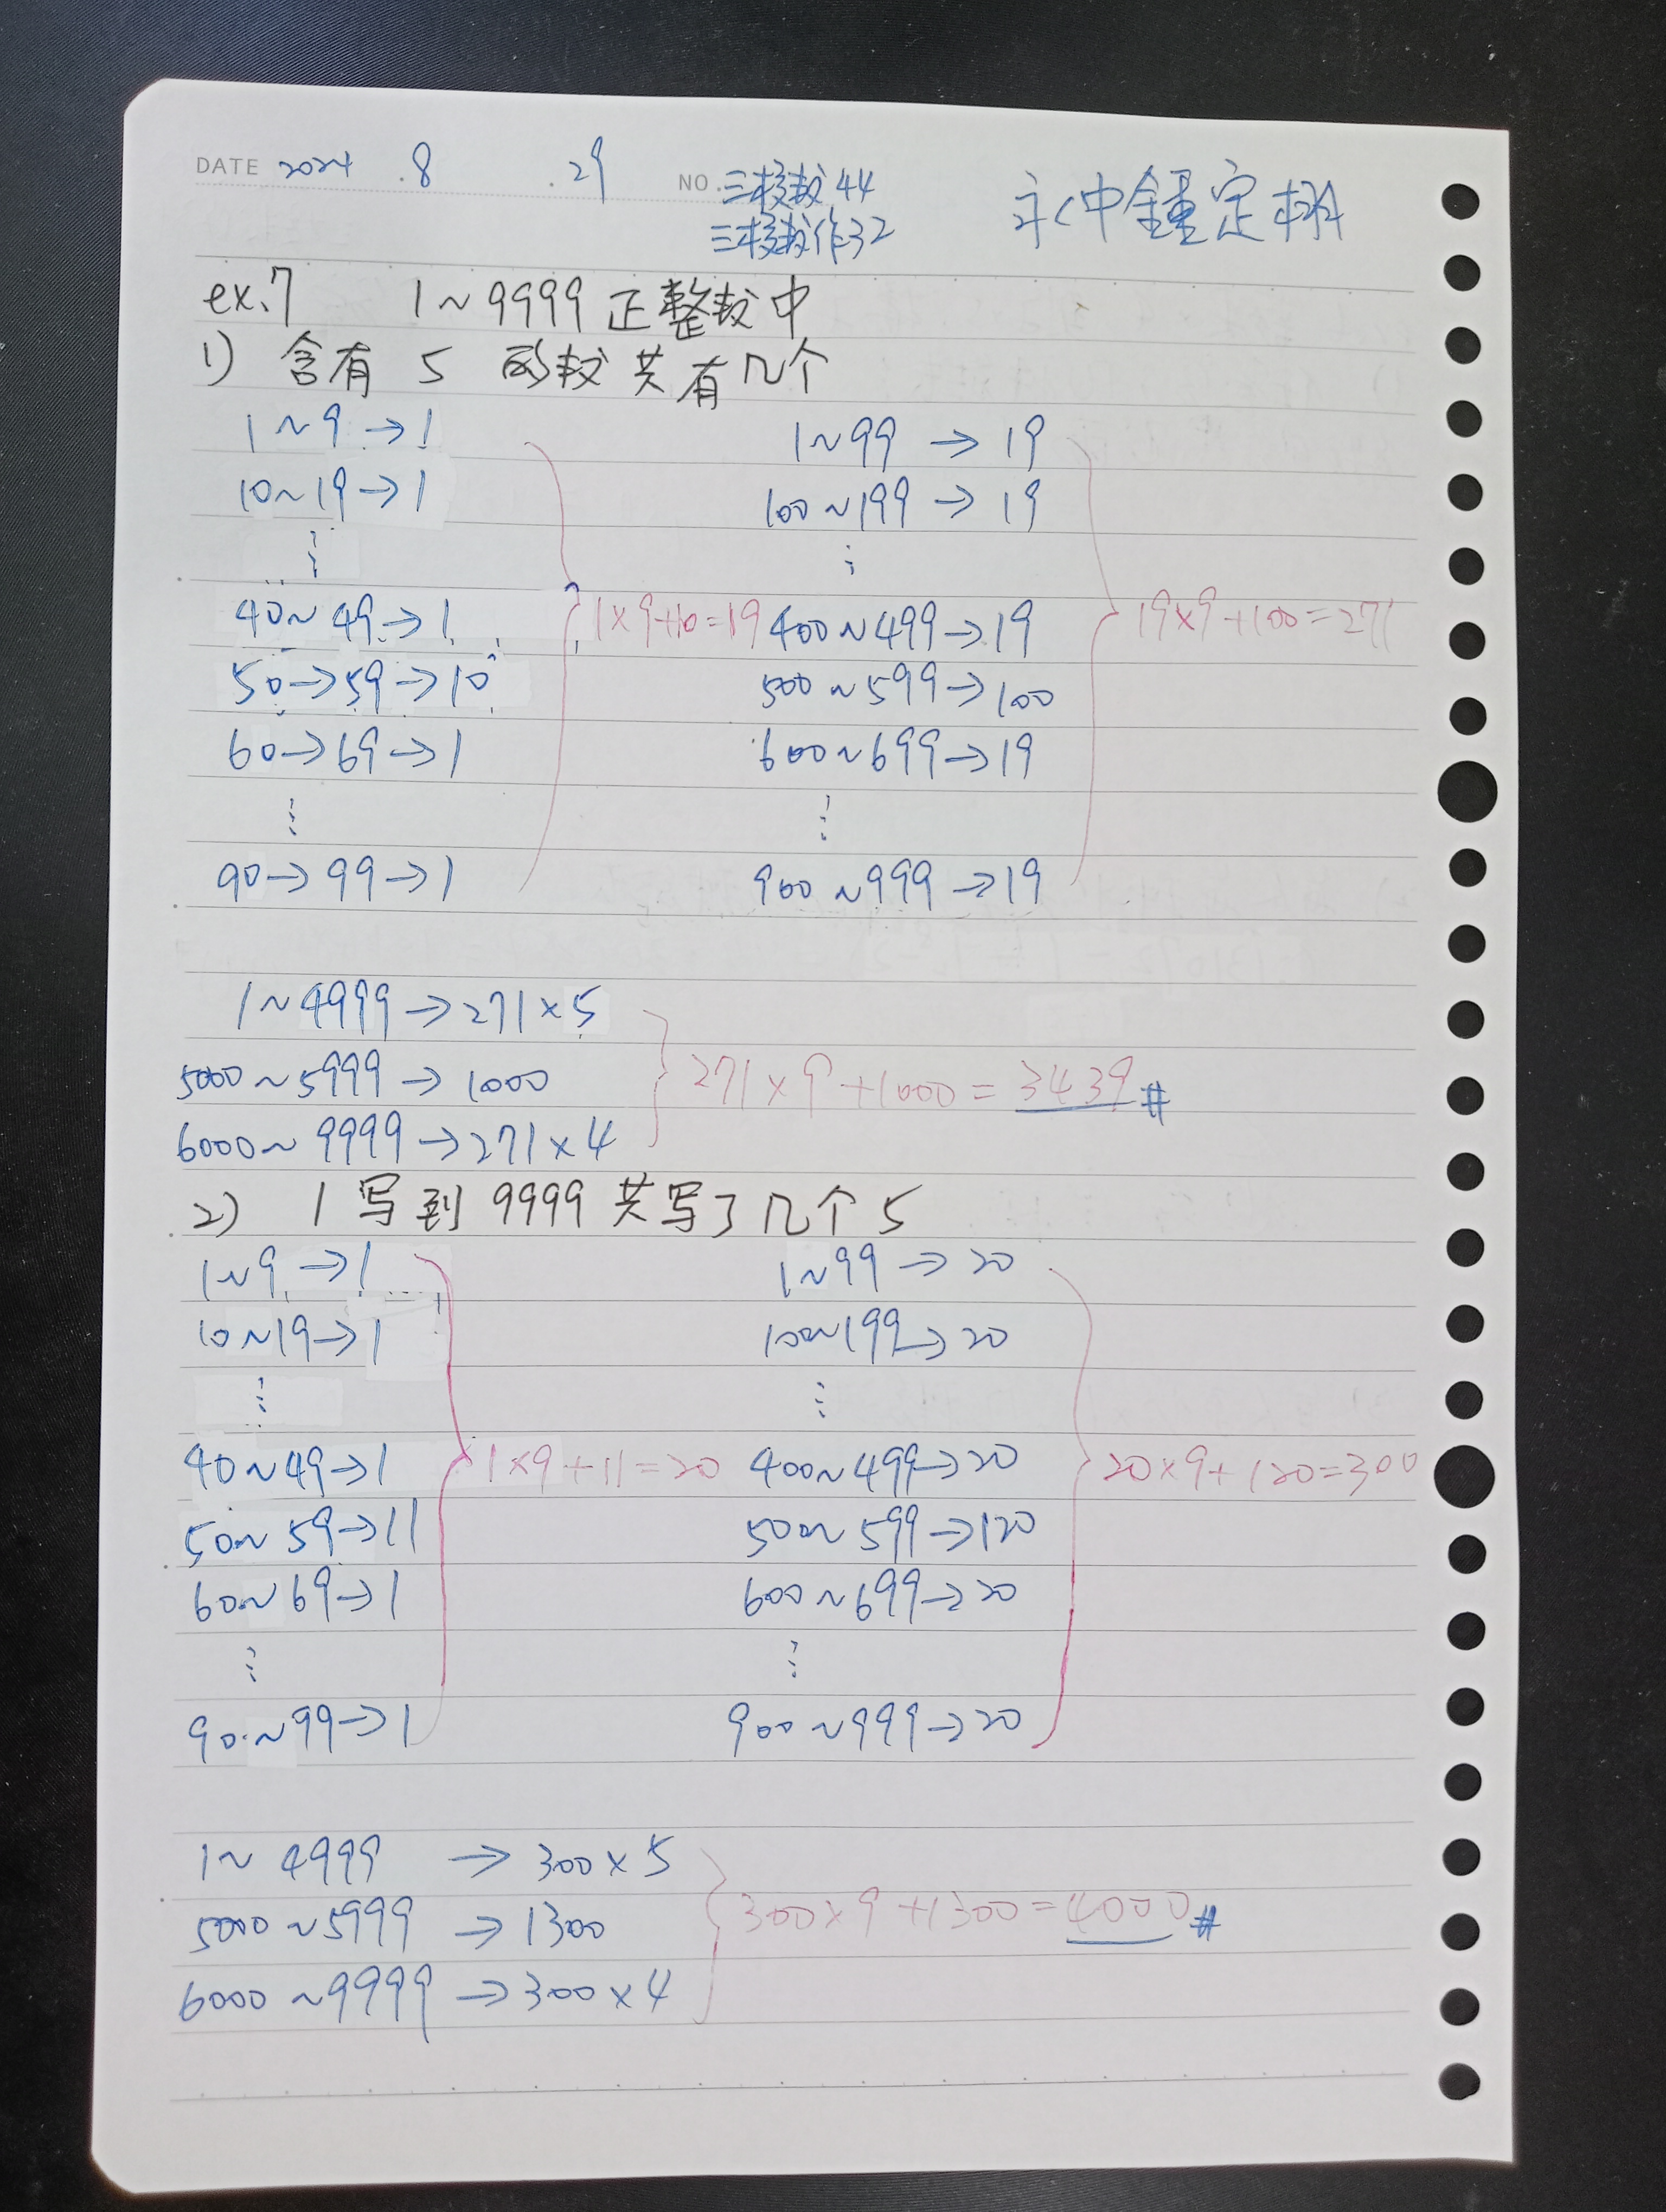 DATE 2024 .8 .29 NO. 三校教44
三校教作32
永中鐘定
ex.7 1~9999正整数中
1) 含有 5 的数共有几个
1~9→1
10~19→1
⋮
40~49→1
50→59→10
60→69→1
⋮
90→99→1
1×9+10=19
1~99→19
100~199→19
⋮
400~499→19
500~599→100
600~699→19
⋮
900~999→19
19×9+100=271
1~4999→271×5
5000~5999→1000
6000~9999→271×4
271×9+1000=3439#
2) 1写到9999共写了几个5
1~9→1
10~19→1
⋮
40~49→1
50~59→11
60~69→1
⋮
90~99→1
1×9+11=20
1~99→20
100~199→20
⋮
400~499→20
500~599→120
600~699→20
⋮
900~999→20
20×9+120=300
1~4999→300×5
5000~5999→1300
6000~9999→300×4
300×9+1300=4000#